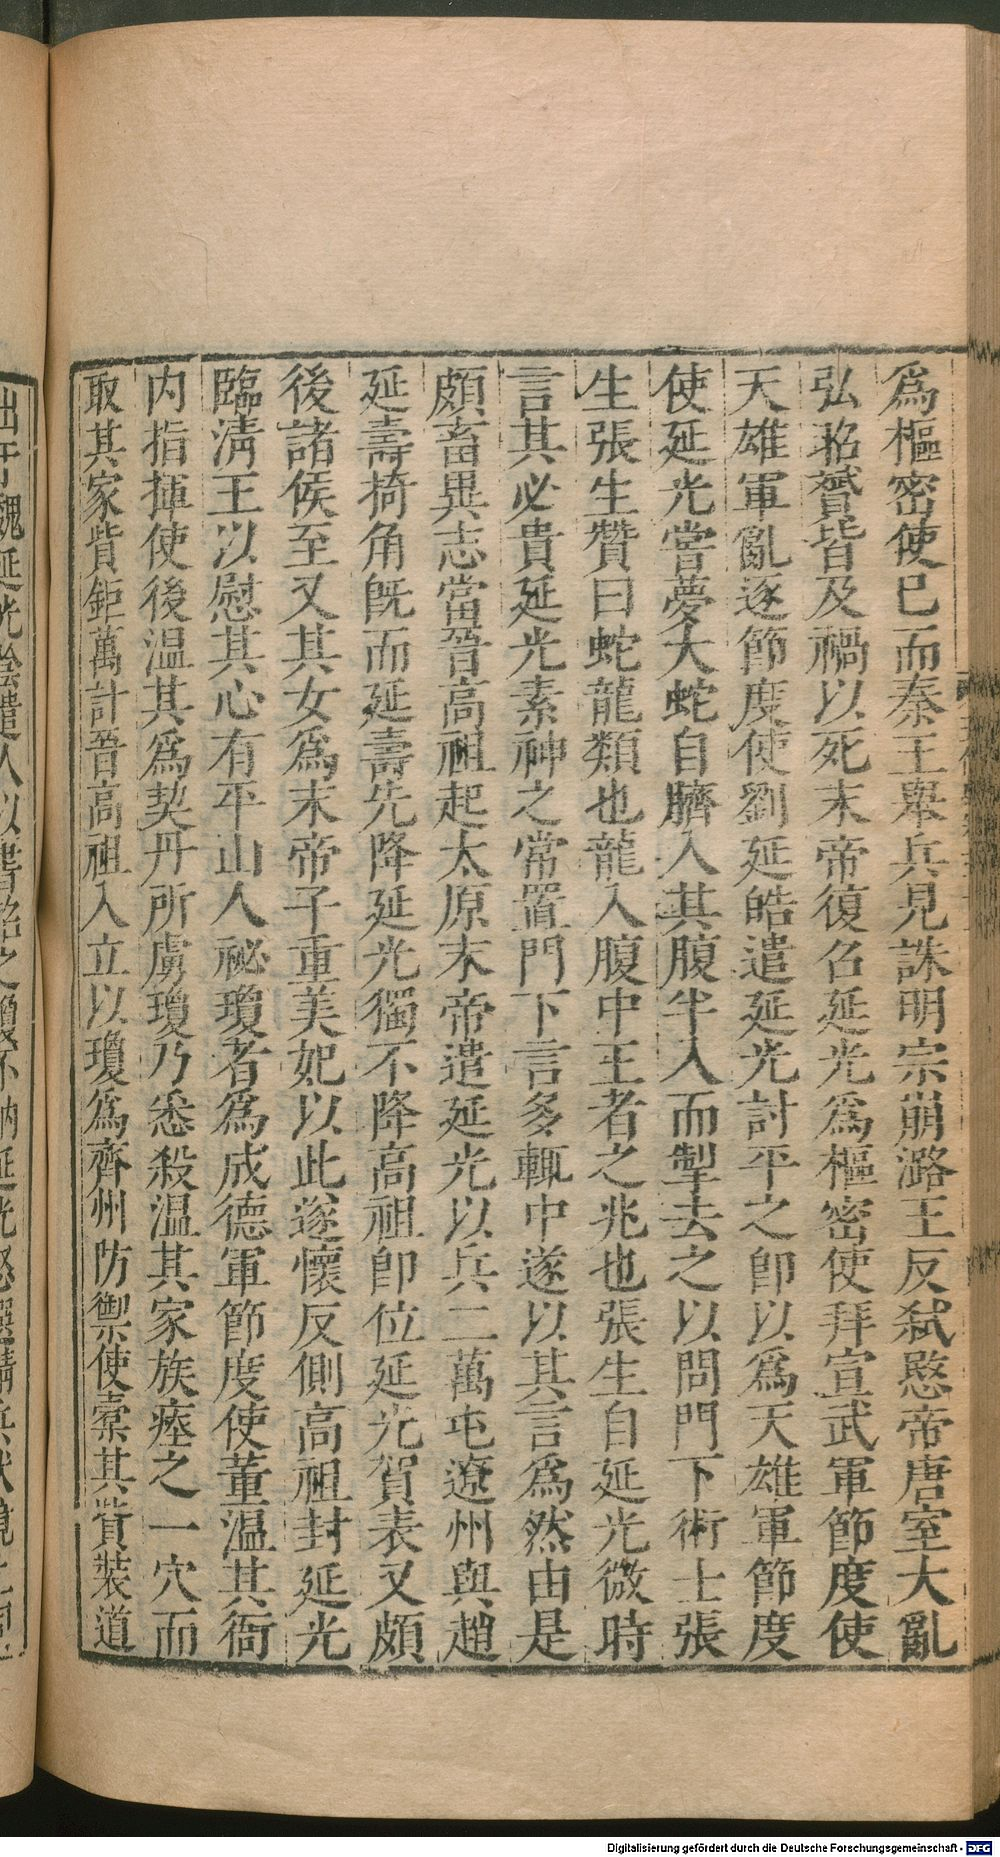 爲樞密使已而秦王舉兵見誅明宗崩潞王反弑愍帝唐室大亂
弘昭贇皆及禍以死末帝復召延光爲樞密使拜宣武軍節度使
天雄軍亂逐節度使劉延皓遣延光討平之卽以爲天雄軍節度
使延光嘗夢大蛇自臍入其腹半入而掣去之以問門下術士張
生張生贊曰蛇龍類也龍入腹中王者之兆也張生自延光微時
言其必貴延光素神之常置門下言多輒中遂以其言爲然由是
頗畜異志當晉高祖起太原末帝遣延光以兵二萬屯遼州與趙
延壽掎角旣而延壽先降延光獨不降高祖卽位延光賀表又頗
後諸侯至又其女爲末帝子重美妃以此遂懷反側高祖封延光
臨淸王以慰其心有平山人祕瓊者爲成德軍節度使董温其衙
内指揮使後温其爲契丹所虜瓊乃悉殺温其家族瘞之一穴而
取其家貲鉅萬計晉高祖入立以瓊爲齊州防禦使橐其貲裝道
出于魏延光陰遣人以書招之瓊不納延光怒選精兵伏境上伺
Digitalisierung gefördert durch die Deutsche Forschungsgemeinschaft - DFG